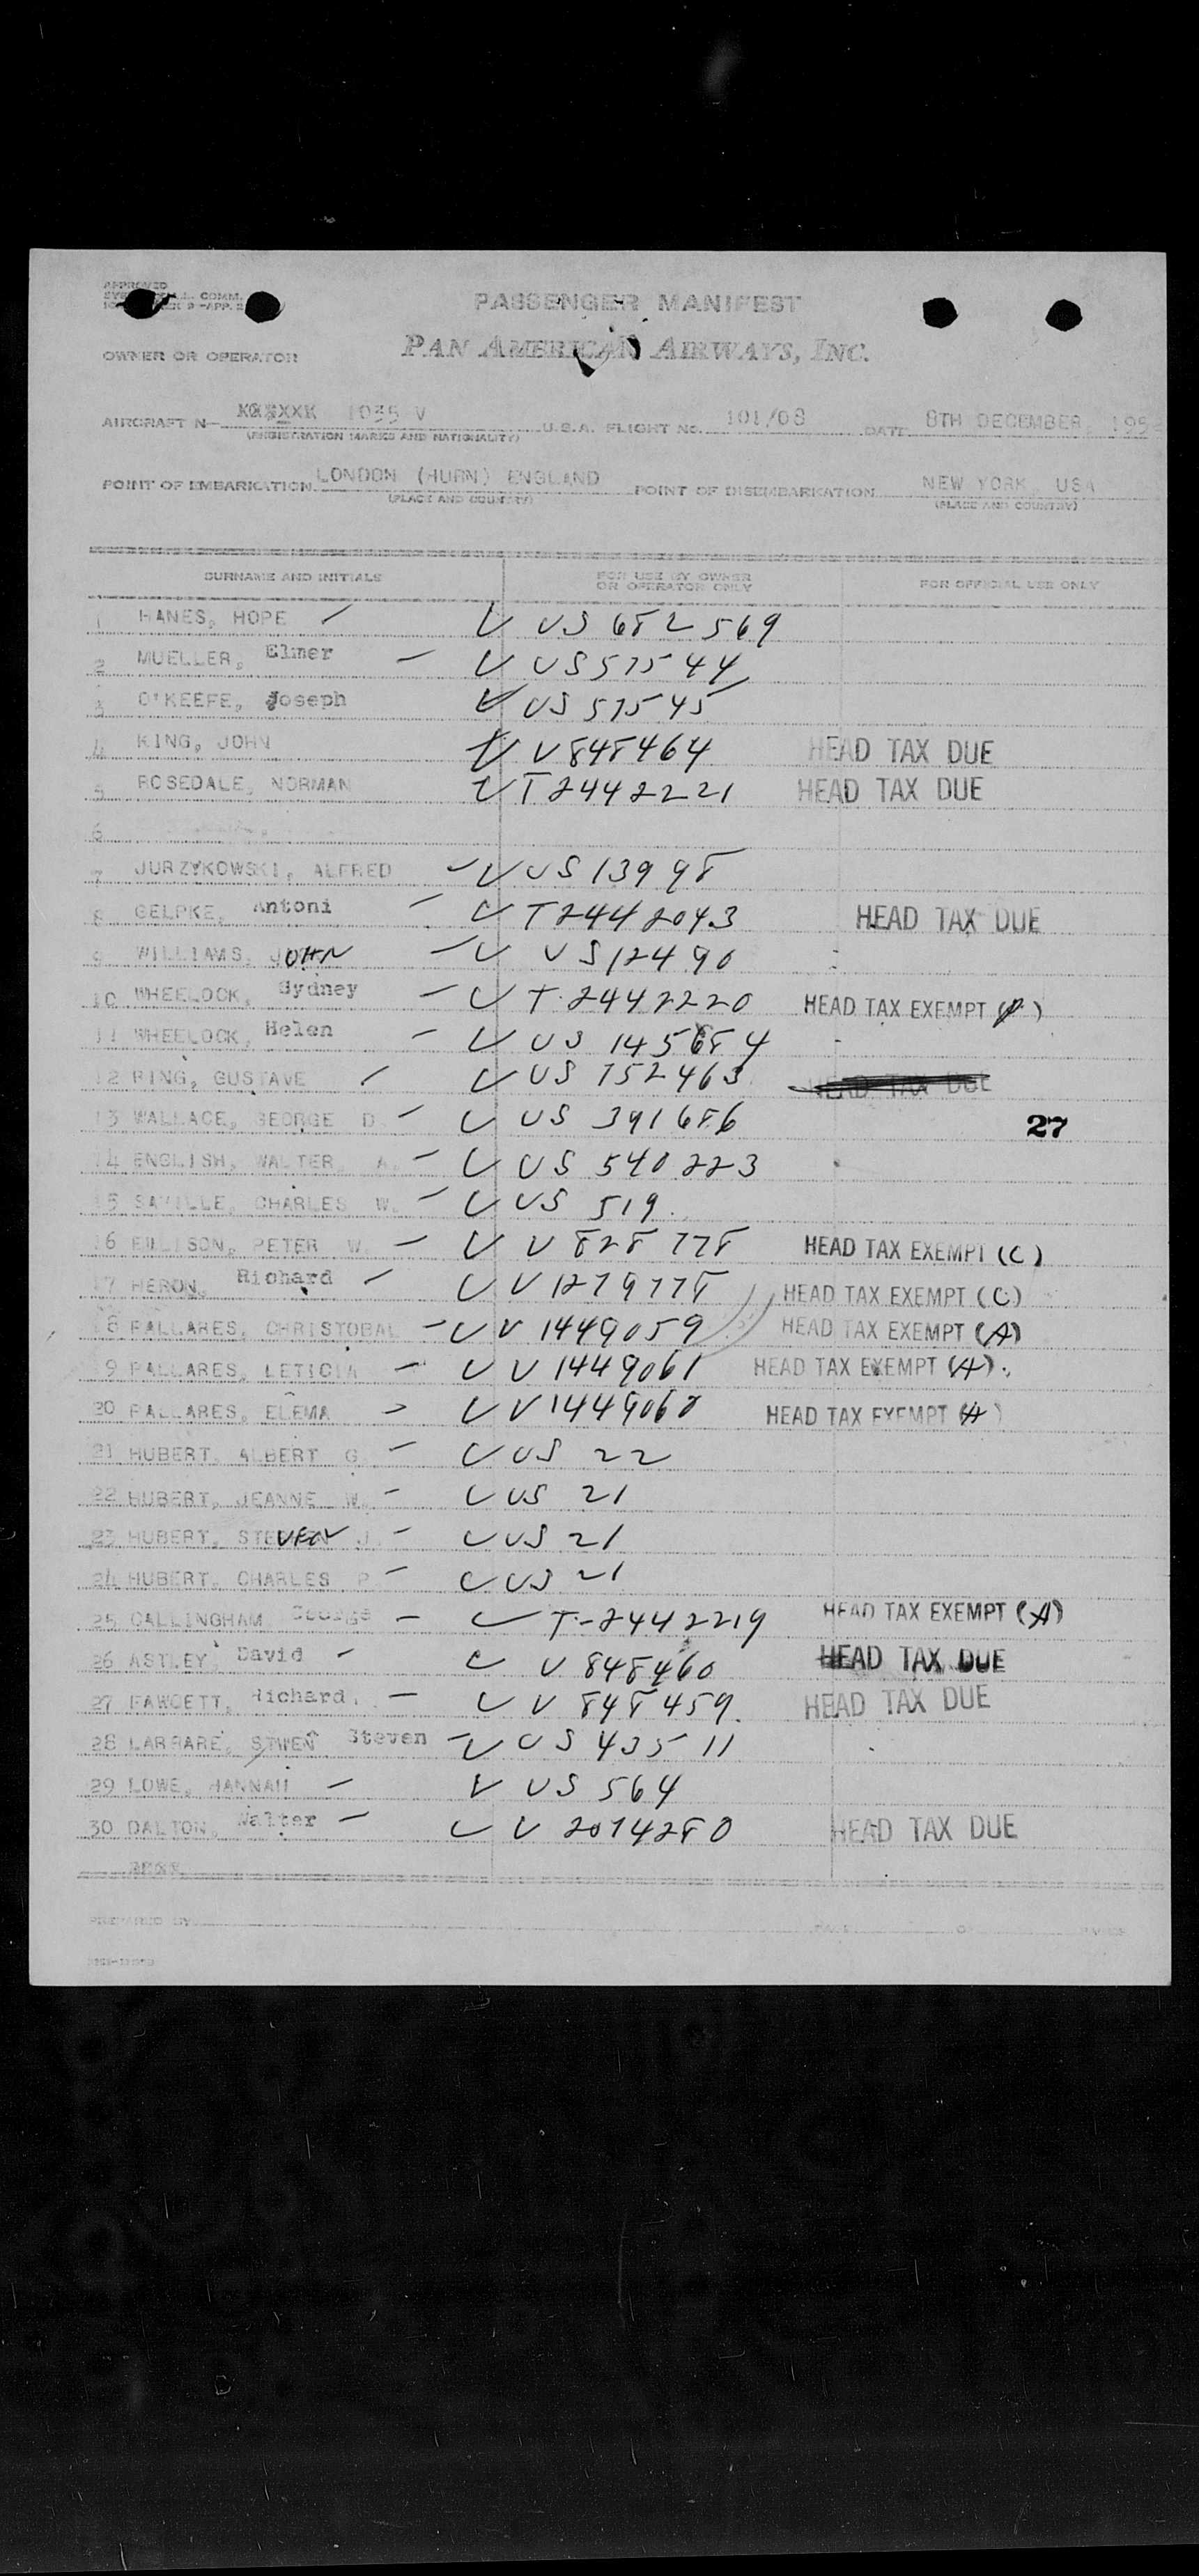 APPROVED
COMM.
PASSENGER MANIFEST
OWNER OR OPERATOR PAN AMERICAN AIRWAYS, INC.
AIRCRAFT N 1035 V U.S.A. FLIGHT NO. 101/08 DATE 8TH DECEMBER, 195
(REGISTRATION MARKS AND NATIONALITY)
POINT OF EMBARKATION LONDON (HURN) ENGLAND POINT OF DISEMBARKATION NEW YORK, USA
(PLACE AND COUNTRY) (PLACE AND COUNTRY)
SURNAME AND INITIALS FOR USE BY OWNER OR OPERATOR ONLY FOR OFFICIAL USE ONLY
1 HANES, HOPE US 682569
2 MUELLER, Elmer US 57544
3 O'KEEFE, Joseph US 57545
4 KING, JOHN V 848464 HEAD TAX DUE
5 ROSEDALE, NORMAN T 2442221 HEAD TAX DUE
6
7 JURZYKOWSKI, ALFRED US 13998
8 GELPKE, Antoni T 2442043 HEAD TAX DUE
9 WILLIAMS, JOHN US 12490
10 WHEELOCK, Sydney T 2442220 HEAD TAX EXEMPT
11 WHEELOCK, Helen US 145684
12 RING, GUSTAVE US 752463 HEAD TAX DUE
13 WALLACE, GEORGE D. US 391686 27
14 ENGLISH, WALTER A. US 540223
15 SAVILLE, CHARLES W. US 519
16 ELLISON, PETER W. V 828778 HEAD TAX EXEMPT (C)
17 HERON, Richard V 1279778 HEAD TAX EXEMPT (C)
18 PALLARES, CHRISTOBAL V 1449059 HEAD TAX EXEMPT (A)
19 PALLARES, LETICIA V 1449061 HEAD TAX EXEMPT (A)
20 PALLARES, ELEMA V 1449060 HEAD TAX EXEMPT (A)
21 HUBERT, ALBERT G. US 22
22 HUBERT, JEANNE W. US 21
23 HUBERT, STEVEN J. US 21
24 HUBERT, CHARLES P. US 21
25 CALLINGHAM George T-2442219 HEAD TAX EXEMPT (A)
26 ASTLEY, David V 848460 HEAD TAX DUE
27 FAWCETT, Richard. V 848459. HEAD TAX DUE
28 LARRARE, Steven US 43511
29 LOWE, HANNAH US 564
30 DALTON, Walter V 2074280 HEAD TAX DUE
PREPARED BY PAGE OF PAGES